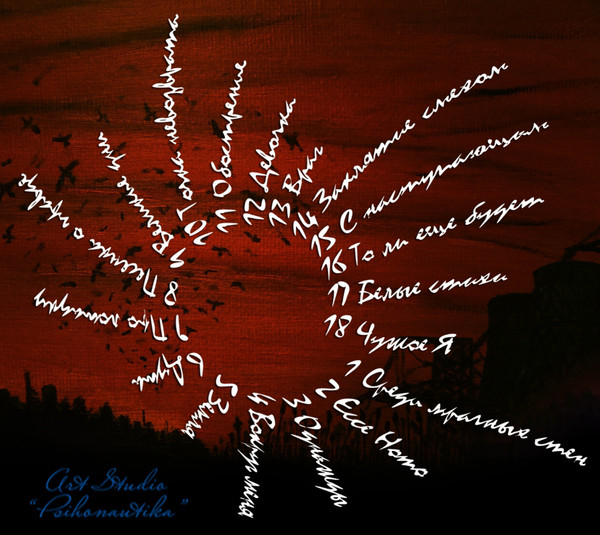 1 Среди мрачных стен
2 Ecce Homo
3 Однажды
4 Вокруг меня
5 Земля
6 Душа
7 Про
8 Песенка о правде
9 Великие
10 Точка невозврата
11 Обострение
12 Девочка
13 Враг
14 Заклятие смехом
15 С наступающим
16 То ли еще будет
17 Белые стихи
18 Чужое Я
Art Studio
"Psihonautika"